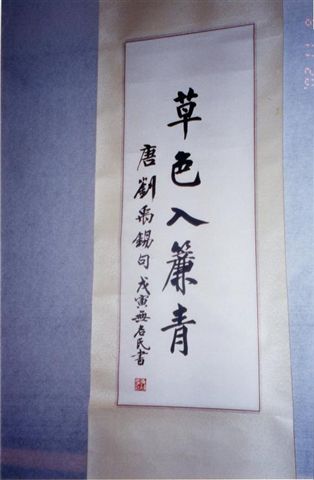 草色入簾青
唐劉禹錫句戊寅無名民書